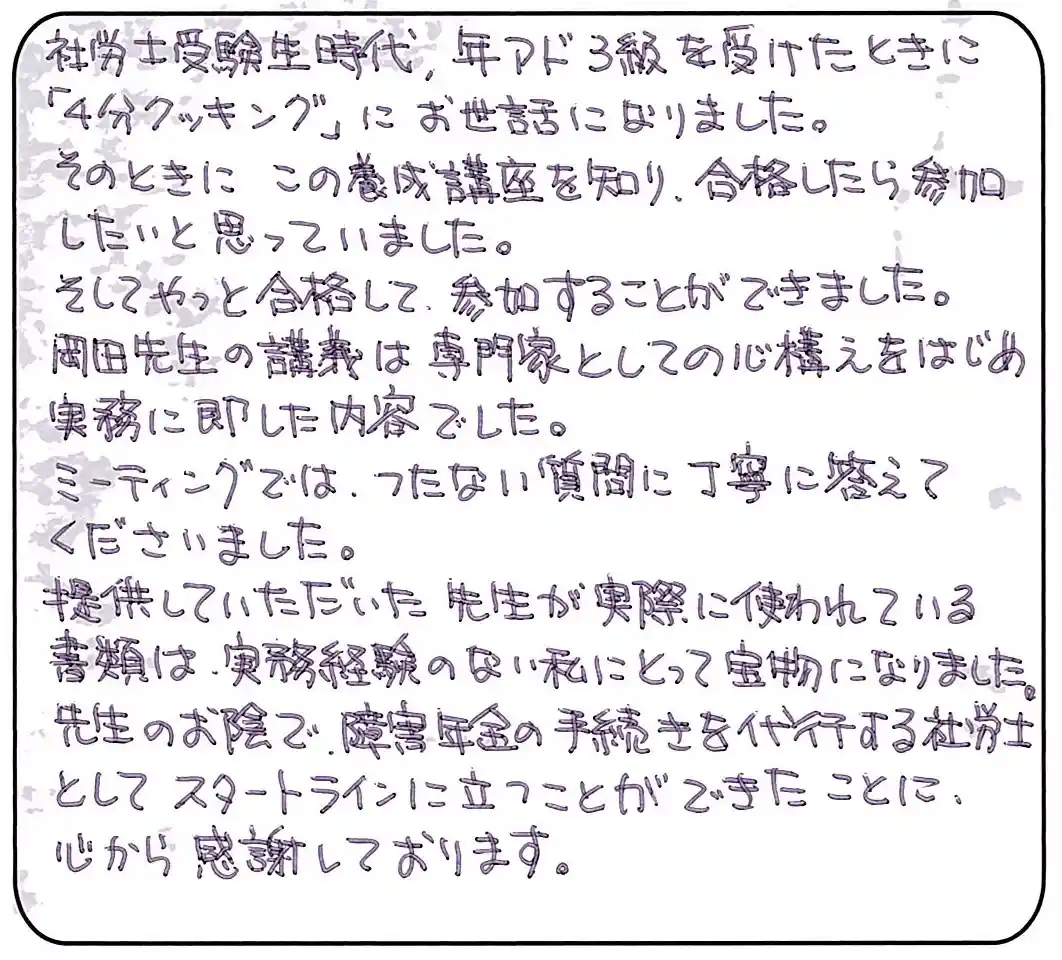 社労士受験生時代、年アド3級を受けたときに
「4分クッキング」にお世話になりました。
そのときに この養成講座を知り、合格したら参加
したいと思っていました。
そしてやっと合格して、参加することができました。
岡田先生の講義は専門家としての心構えをはじめ
実務に即した内容でした。
ミーティングでは、つたない質問に丁寧に答えて
くださいました。
提供していただいた 先生が実際に使われている
書類は、実務経験のない私にとって宝物になりました。
先生のお陰で、障害年金の手続きを代行する社労士
として スタートラインに立つことができたことに、
心から感謝しております。